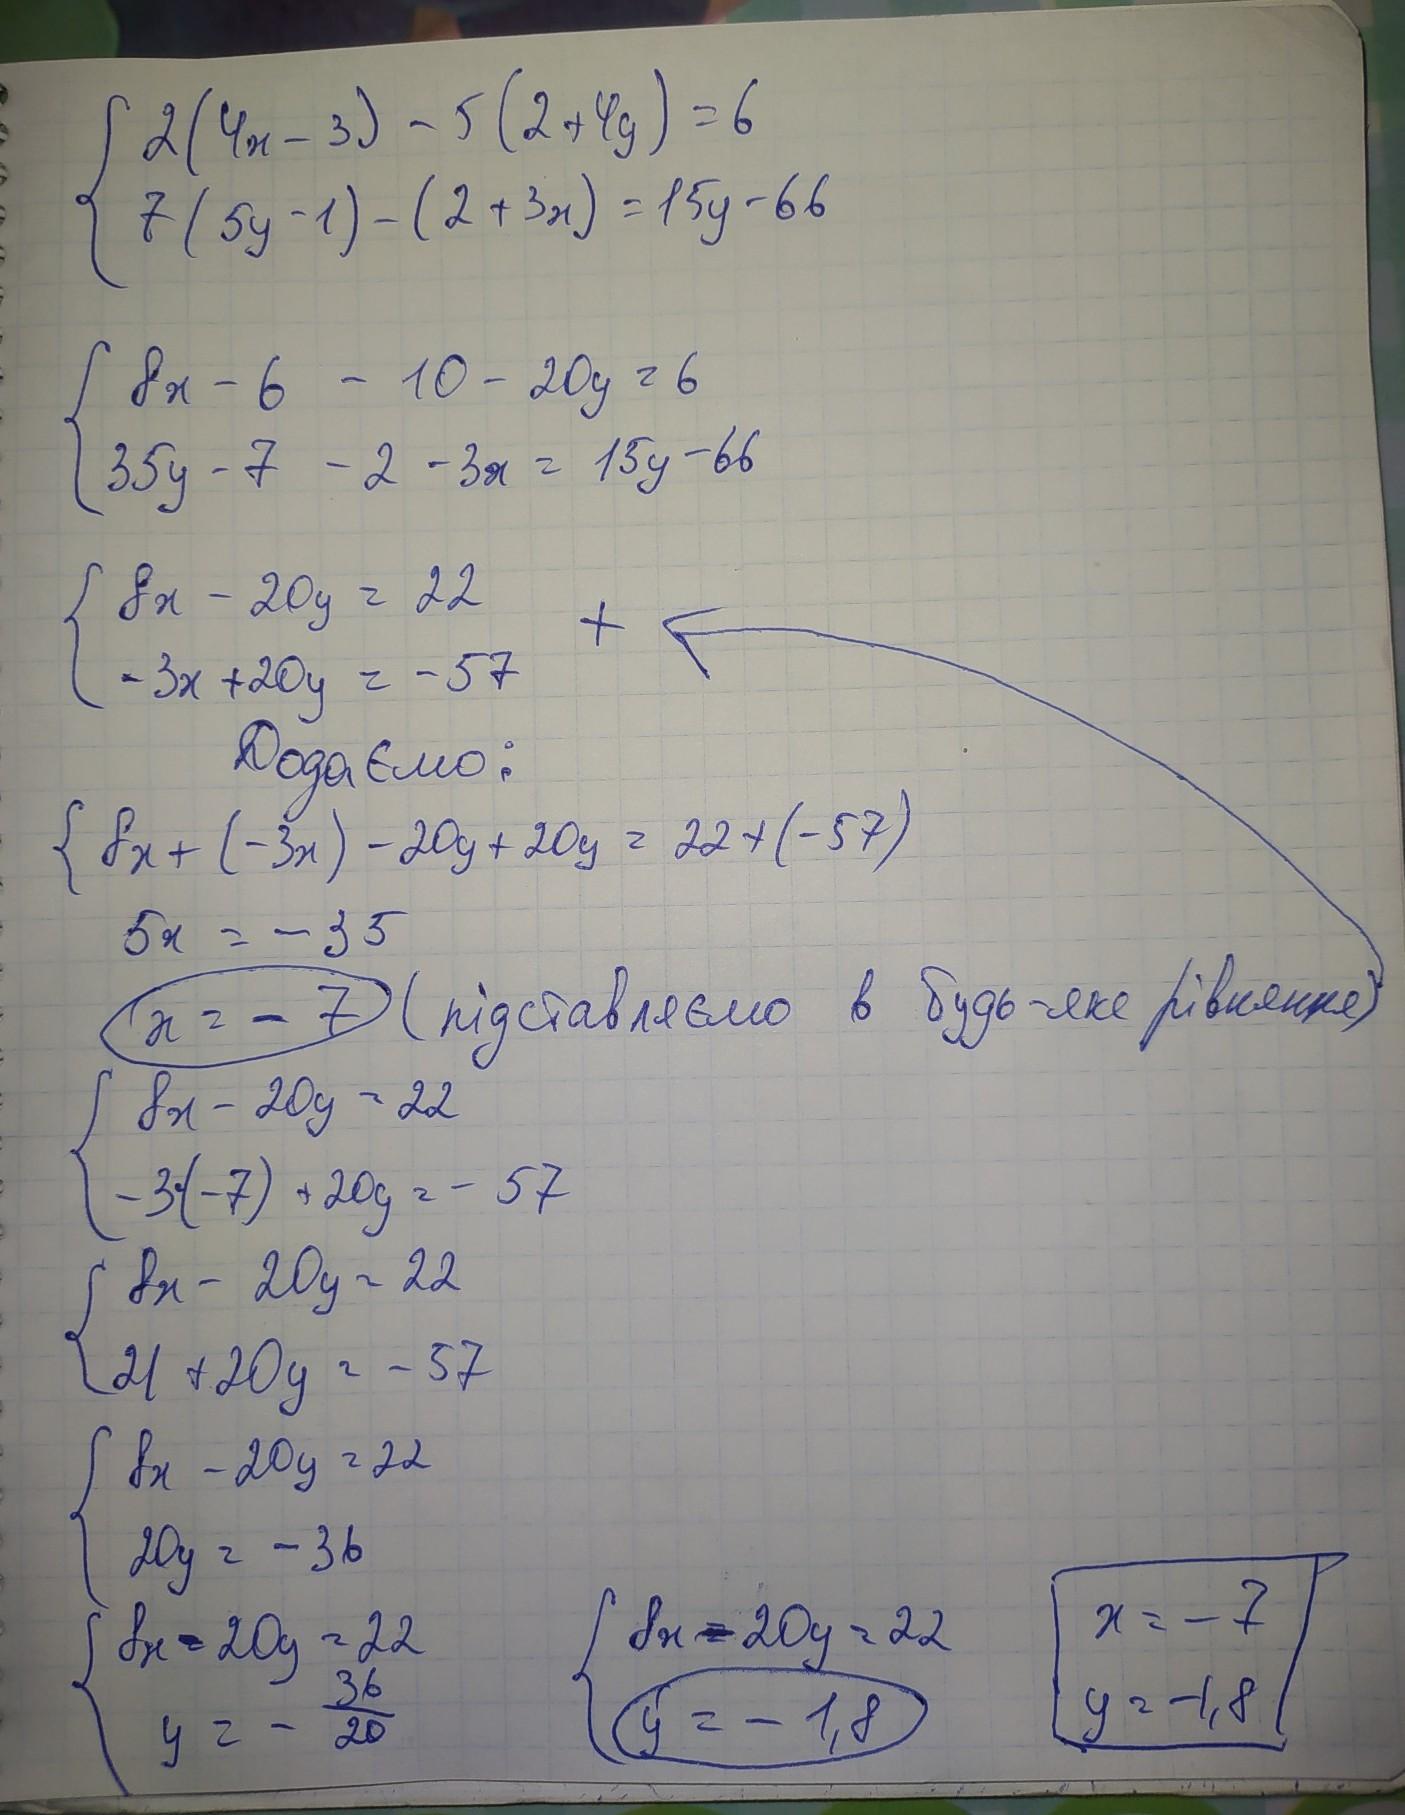 2(4x-3)-5(2+4y)=6
7(5y-1)-(2+3x)=15y-66
8x-6 -10-20y=6
35y-7 -2-3x=15y-66
8x-20y=22
-3x+20y=-57
+
Додаємо:
8x+(-3x)-20y+20y=22+(-57)
5x=-35
x=-7 (підставляємо в будь-яке рівняння)
8x-20y=22
-3·(-7)+20y=-57
8x-20y=22
21+20y=-57
8x-20y=22
20y=-36
8x-20y=22
y=-36/20
8x-20y=22
y=-1,8
x=-7
y=-1,8